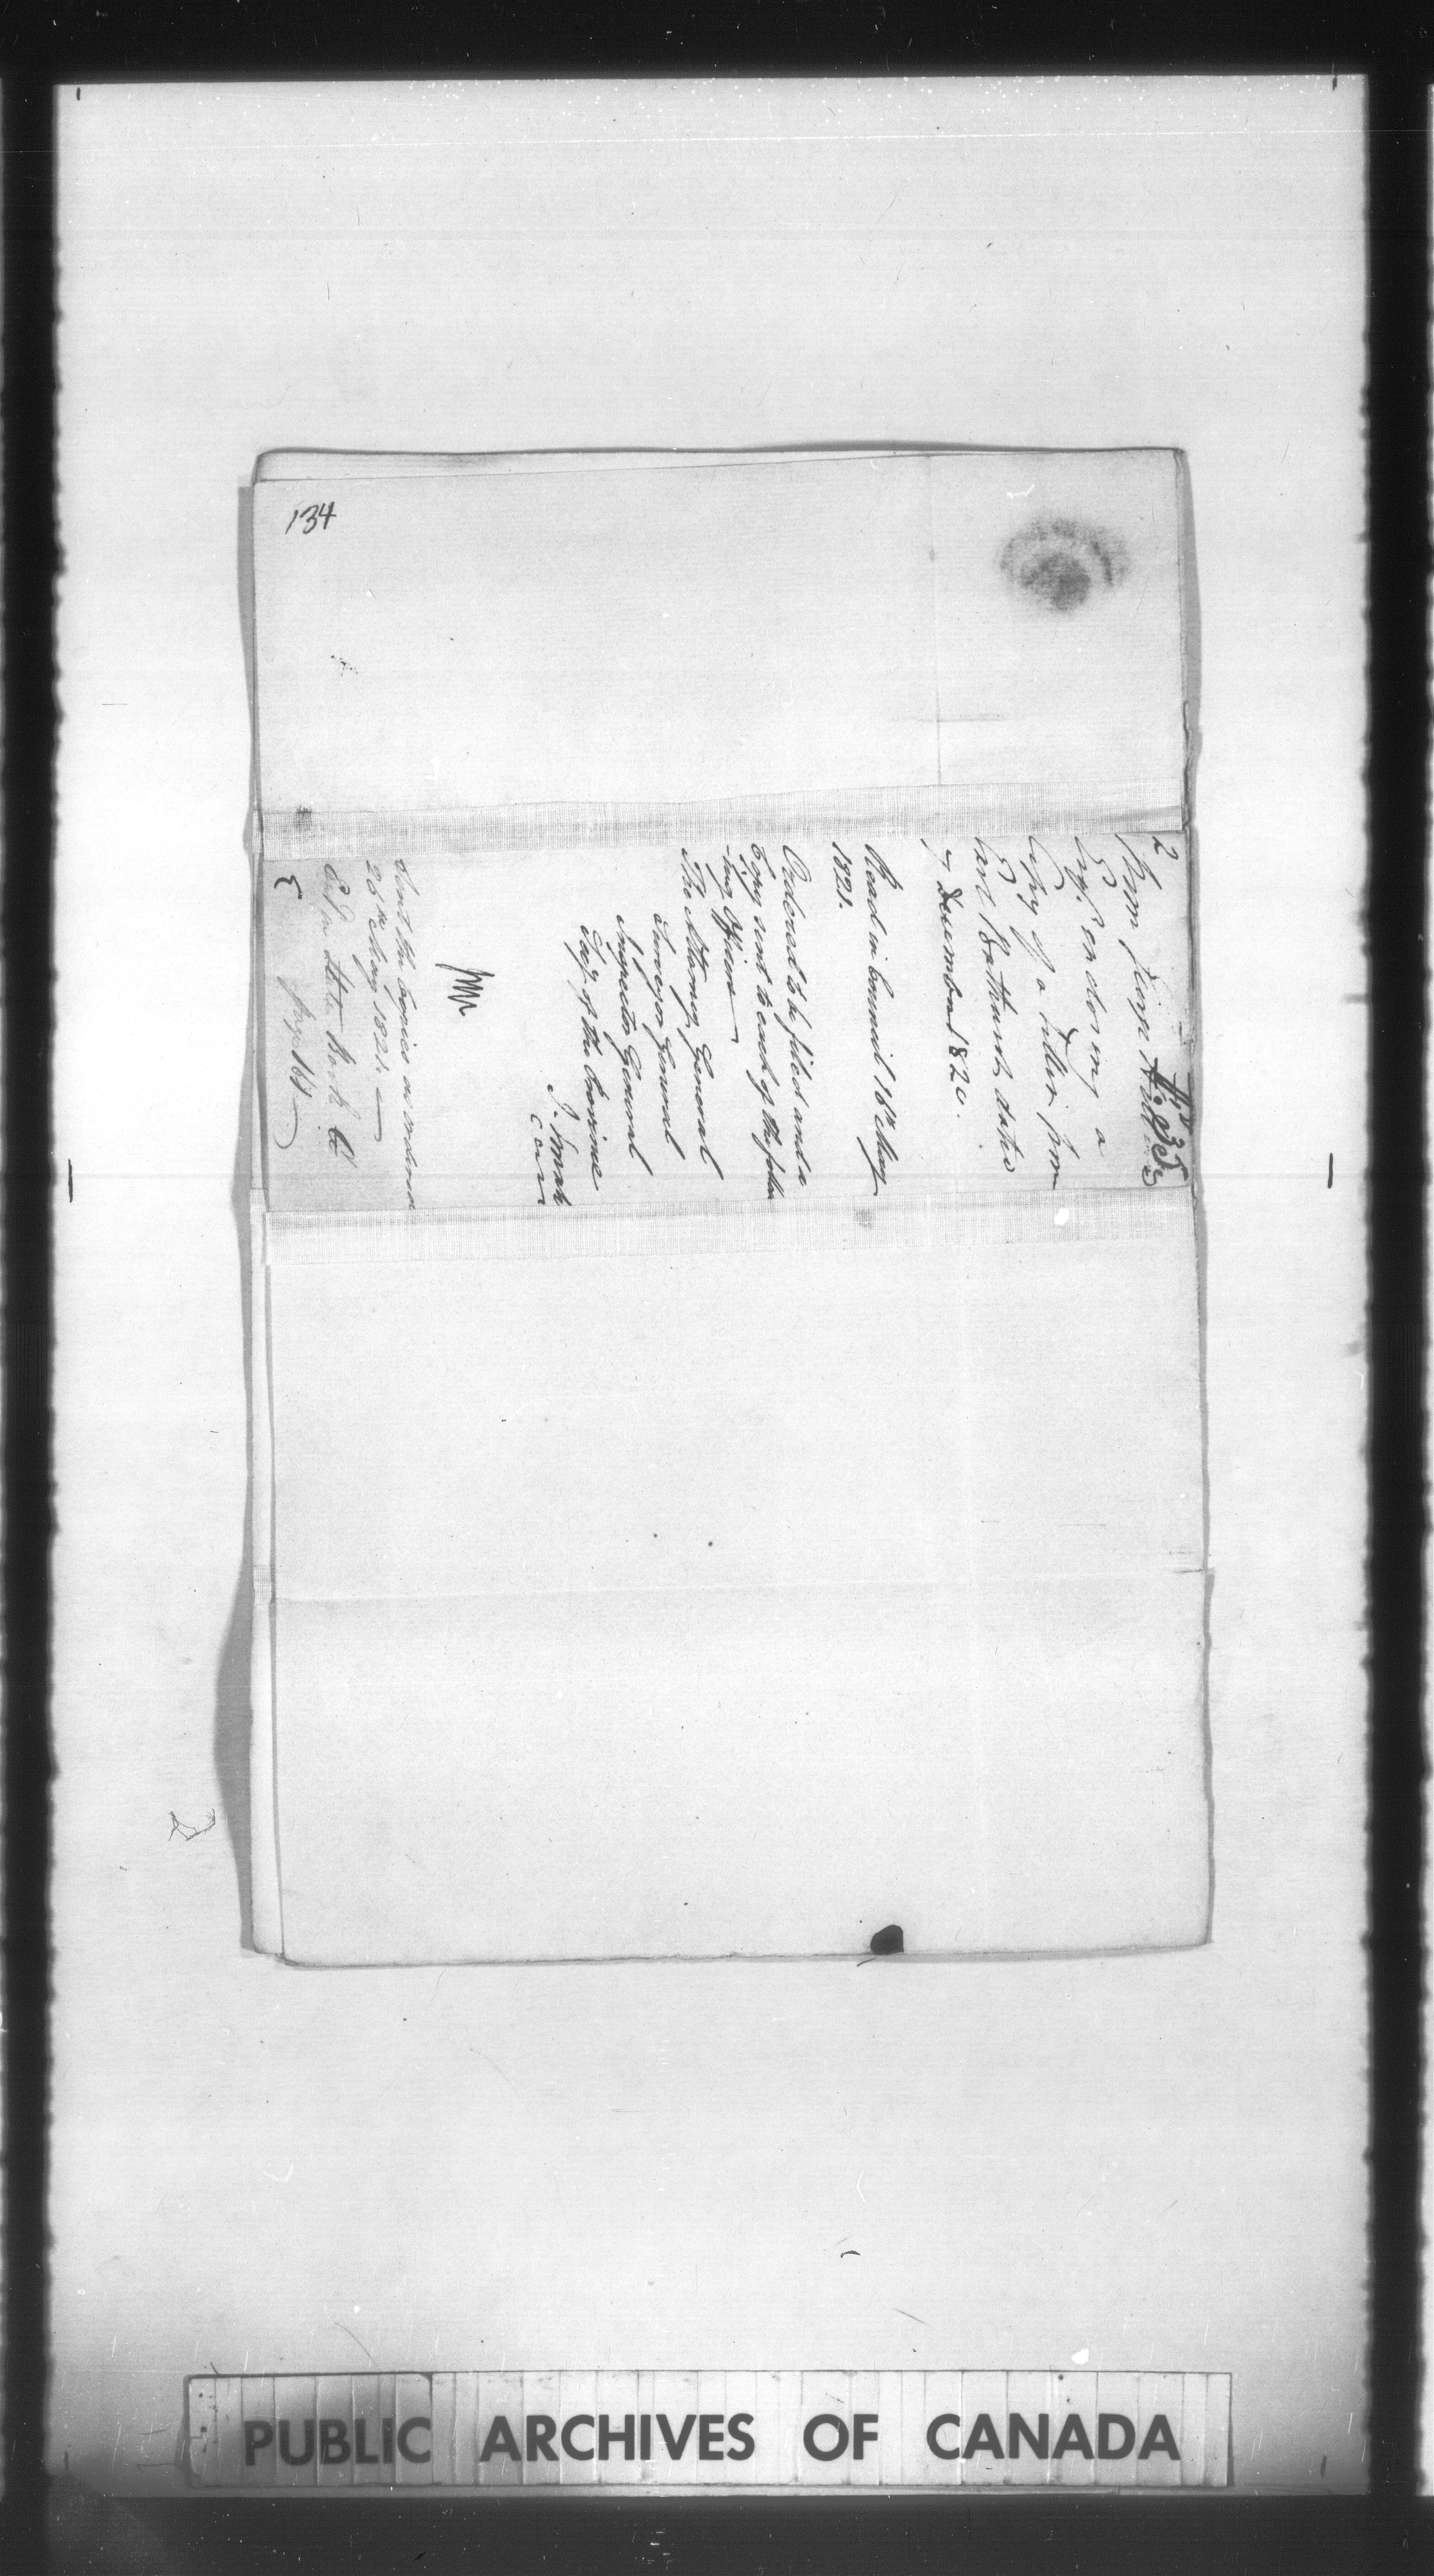 134
2
From George Hillier
Esqr. enclosing a
Copy of a Letter from
Earl Bathurst, dated
7 December 1820.
Read in Council 16th May
1821.
Ordered to be filed and a
Copy sent to each of the follow
-ing Officers
The Attorney General
Surveyor General
Inspector General
Secy of the Province
J. Small
Sent the Copies as ordered
26th May 1821.
State Book
page 167
PUBLIC ARCHIVES OF CANADA